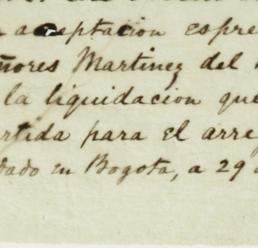 aceptacion espre
ñores Martinez del
la liquidacion que
rtida para el arre
dado en Bogota, a 29